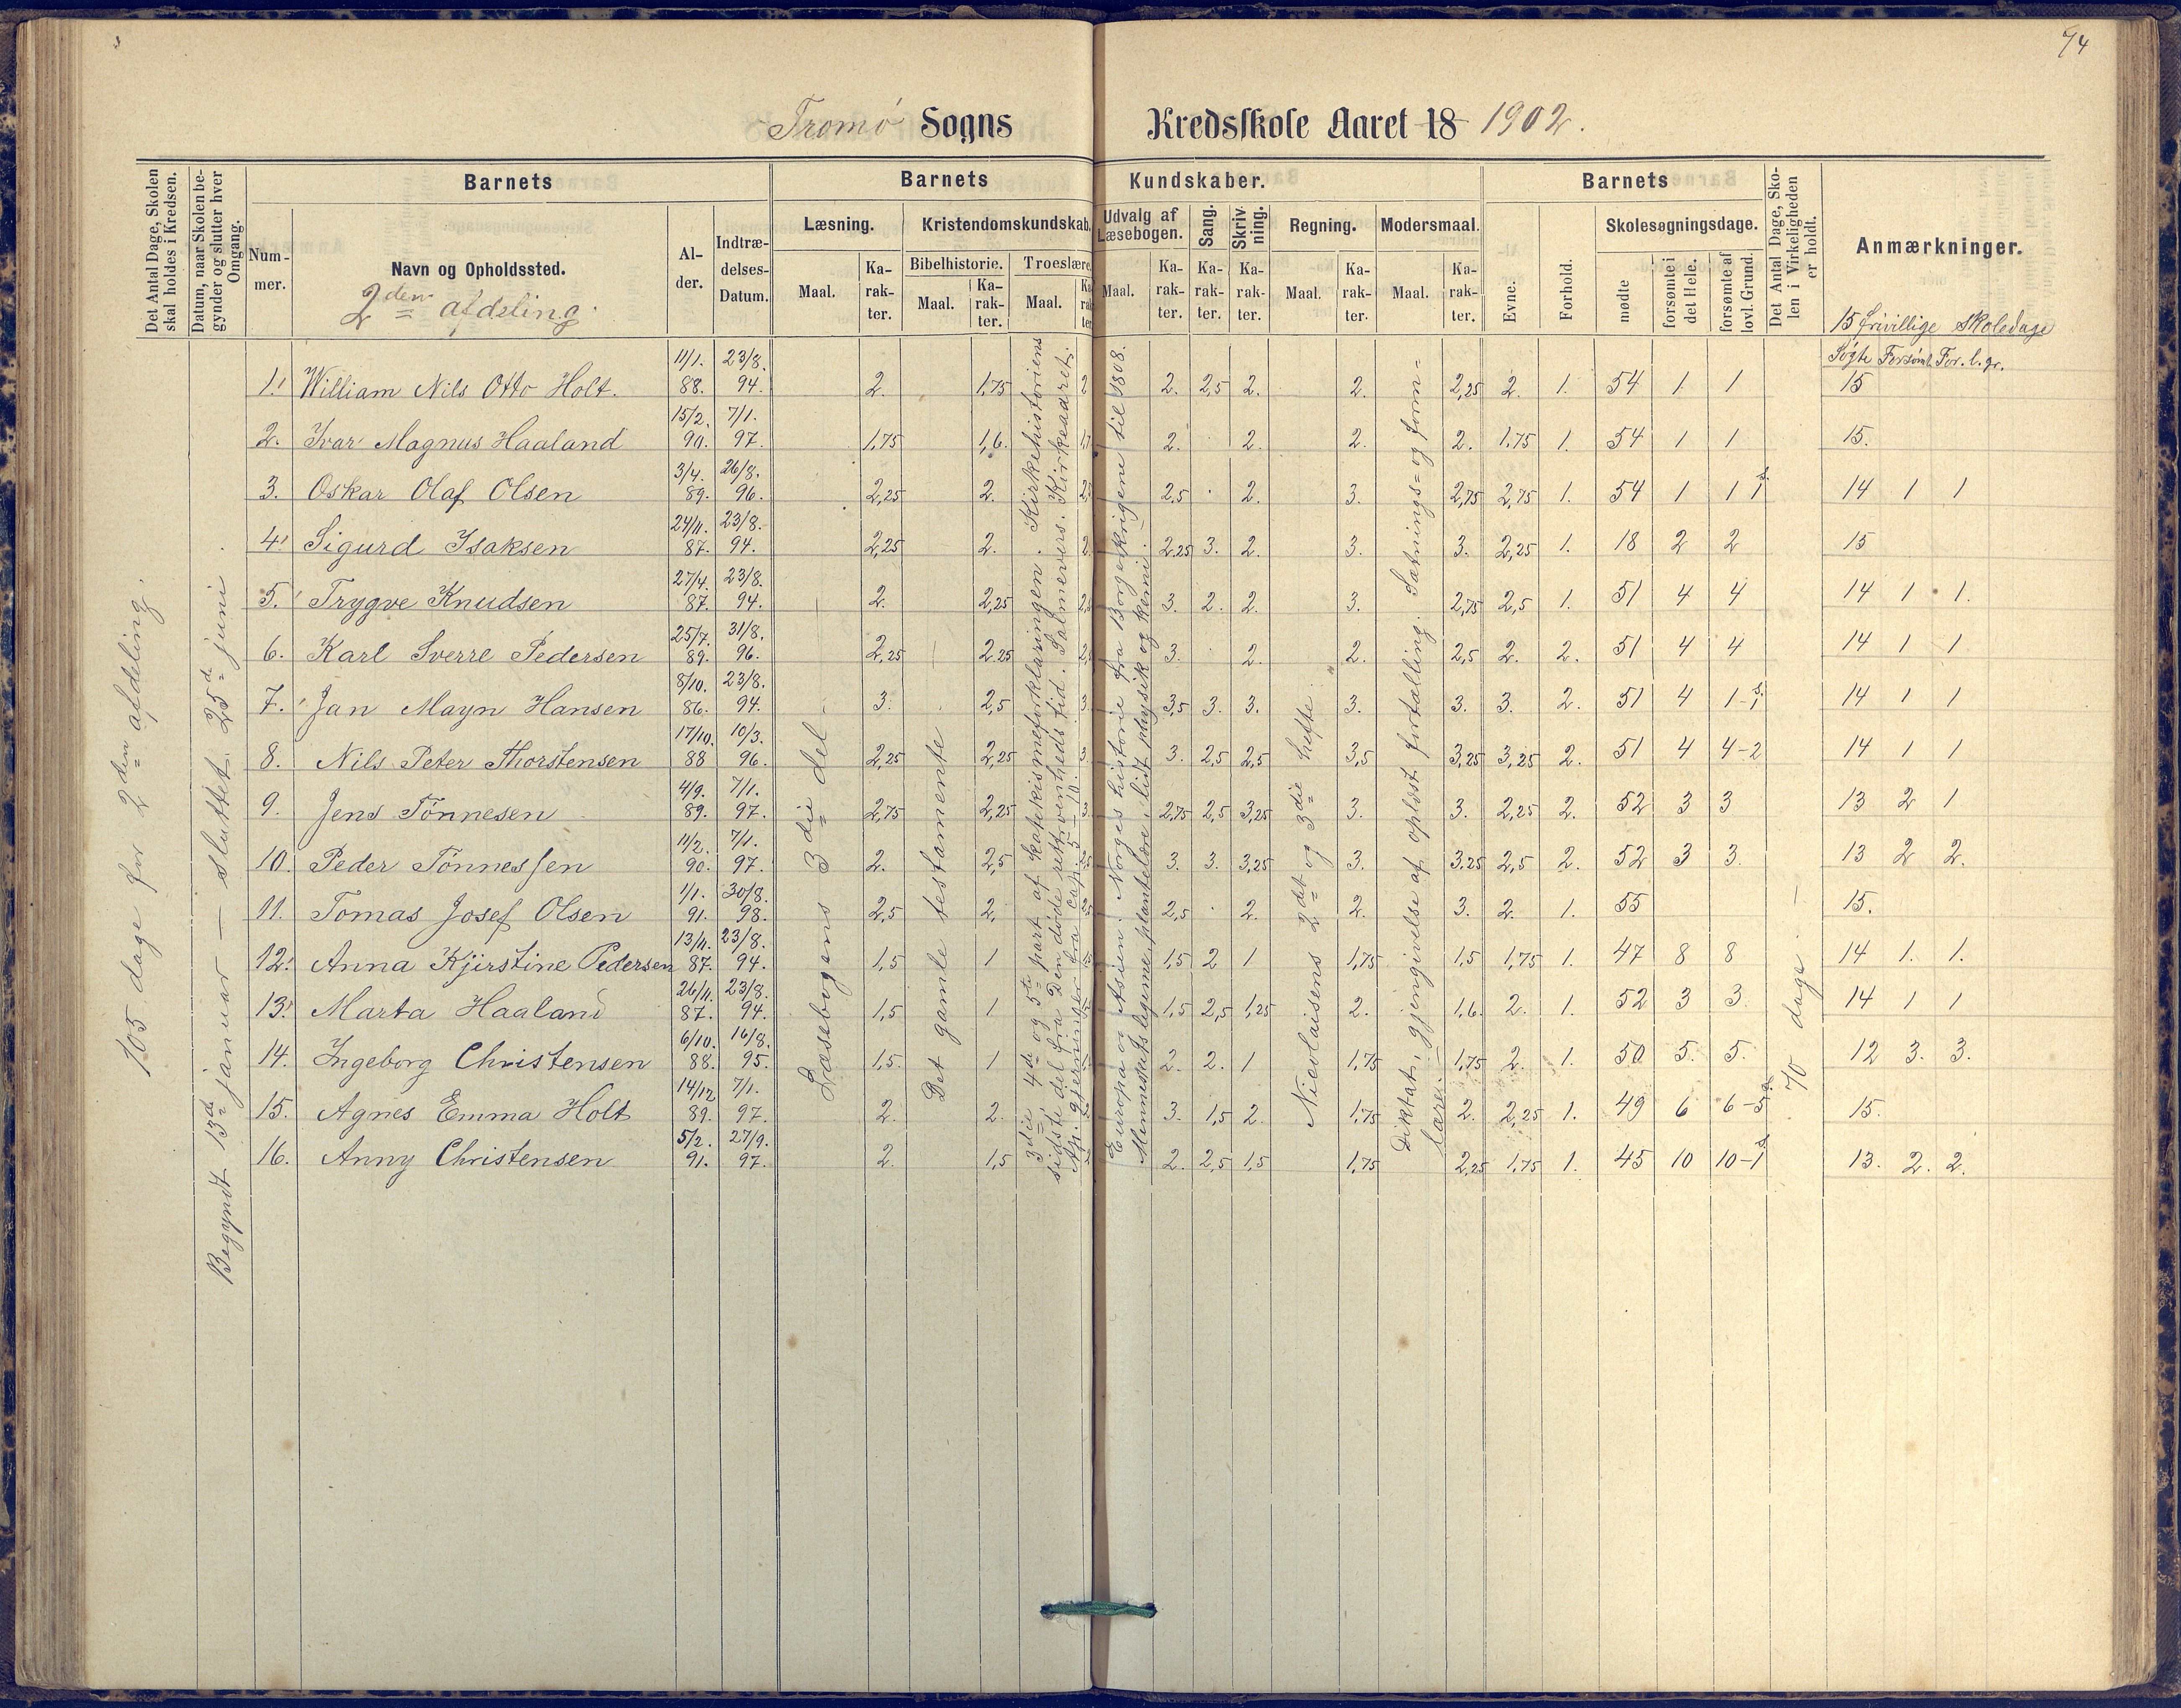 74
Tromø Sogns Kredsskole Aaret 18 1902.
Det Antal Dage, Skolen skal holdes i Kredsen.
Datum, naar Skolen begynder og slutter hver Omgang.
Barnets
Num-mer.
Navn og Opholdssted.
2den afdeling.
Al-der.
Indtræ-delses-Datum.
Barnets Kundskaber.
Læsning.
Maal.
Ka-rak-ter.
Kristendomskundskab.
Bibelhistorie.
Maal.
Ka-rak-ter.
Troeslære.
Maal.
Ka-rak-ter.
Udvalg af Læsebogen.
Maal.
Ka-rak-ter.
Sang.
Ka-rak-ter.
Skriv-ning.
Ka-rak-ter.
Regning.
Maal.
Ka-rak-ter.
Modersmaal.
Maal.
Ka-rak-ter.
Barnets
Evne.
Forhold.
Skolesøgningsdage.
mødte
forsømte i det Hele.
forsømte af lovl. Grund.
Det Antal Dage, Sko-len i Virkeligheden er holdt.
Anmærkninger.
15 frivillige skoledage
Søgte Forsømt For. l. gr.
105 dage for 2den afdeling.
Begyndt 13de januar — sluttet 25de juni
Læsebogens 3die del
Det gamle testamente
3die, 4de og 5te part af katekismeforklaringen. Kirkehistoriens
sidste del fra Den døde rettroenheds tid. Salmevers. Kirkeaaret.
Ap. gjerninger fra cap. 5 – 10.
Europa og Asien. Norges historie fra Borgerkrigene til 1808.
Menneskets legeme, plantelære, lidt physik og kemi.
Nicolaisens 2det og 3die hefte.
Diktat, gjengivelse af oplæst fortælling. Sætnings= og form=
lære.
70 dage
1. William Nils Otto Holt. 11/1. 88. 23/8. 94. 2. 1,75 2 2. 2,5 2. 2. 2,25 2. 1. 54 1 1 15
2. Ivar Magnus Haaland 15/2. 90. 7/1. 97. 1,75 1,6. 2. 2. 2. 2. 1.75 1. 54 1 1 15.
3. Oskar Olaf Olsen 3/4. 89. 26/8. 96. 2,25 2. 2,5 2. 3. 2,75 2,75 1. 54 1 1 14 1 1
4. Sigurd Isaksen 24/11. 87. 23/8. 94. 2,25 2. 2. 2.25 3. 2. 3. 3. 2,25 1. 18 2 2 15
5. Trygve Knudsen 27/4. 87. 23/8. 94. 2. 2,25 3. 2. 2. 3. 2,75 2,5 1. 51 4 4 14 1 1.
6. Karl Sverre Pedersen 25/7. 89. 31/8. 96. 2,25 2.25 3. 2. 2. 2,5 2. 2. 51 4 4 14 1 1
7. Jan Mayn Hansen 8/10. 86. 23/8. 94. 3. 2,5 3. 3,5 3. 3. 3. 3. 3. 2. 51 4 14 1 1
8. Nils Peter Thorstensen 17/10. 88 10/3. 96. 2,25 2,25 3. 3. 2,5 2,5 3,5 3,25 3,25 2. 51 4 4-2 14 1 1
9. Jens Tønnesen 4/9. 89. 7/1. 97. 2,75 2,25 3. 2,75 2,5 3,25 3. 3. 2,25 2. 52 3 3 13 2 1
10. Peder Tønnessen 11/2. 90. 7/1. 97. 2. 2,5 3. 3. 3,25 3. 3.25 2,5 2. 52 3 3. 13 2 2.
11. Tomas Josef Olsen 1/1. 91. 30/8. 98. 2,5 2. 2,5 2. 2. 3. 2. 1. 55 15.
12. Anna Kjirstine Pedersen 13/11. 87. 23/8. 94. 1,5 1 1,5 2 1 1,75 1,5 1,75 1. 47 8 8 14 1. 1.
13. Marta Haaland 26/11. 87. 23/8. 94. 1,5 1 1,5 2,5 1,25 2. 1,6. 2. 1. 52 3 3. 14 1 1
14. Ingeborg Christensen 6/10. 88. 16/8. 95. 1,5. 1 2. 2. 1 1,75 1,75 2. 1. 50 5. 5. 12 3. 3.
15. Agnes Emma Holt 14/12 89. 7/1. 97. 2. 2. 3. 1,5 2. 1,75 2. 2,25 1. 49 6 6-5 15.
16. Anny Christensen 5/2. 91. 27/9. 97. 2. 1,5 2. 2,5 1,5 1,75 2,25 1,75 1. 45 10 10-1 13. 2. 2.